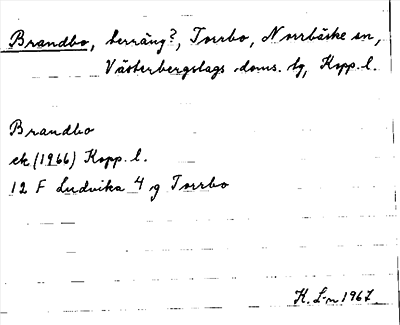 Brandbo, terräng?, Torrbo, Norrbärke sn,
Västerbergslags doms. tg, Kopp. l.
Brandbo
ek (1966) Kopp. l.
12 F Ludvika 4 g Torrbo
H. L-n 1967